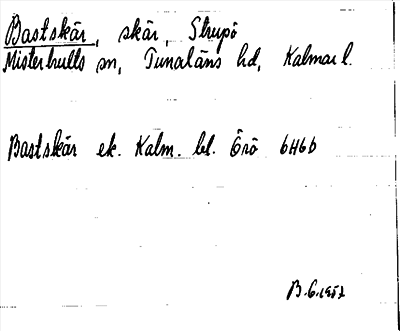 Bastskär, skär, Strupö
Misterhults sn, Tunaläns hd, Kalmar l.
Bastskär ek. Kalm. bl. Örö 6H6b
B.G. 1952